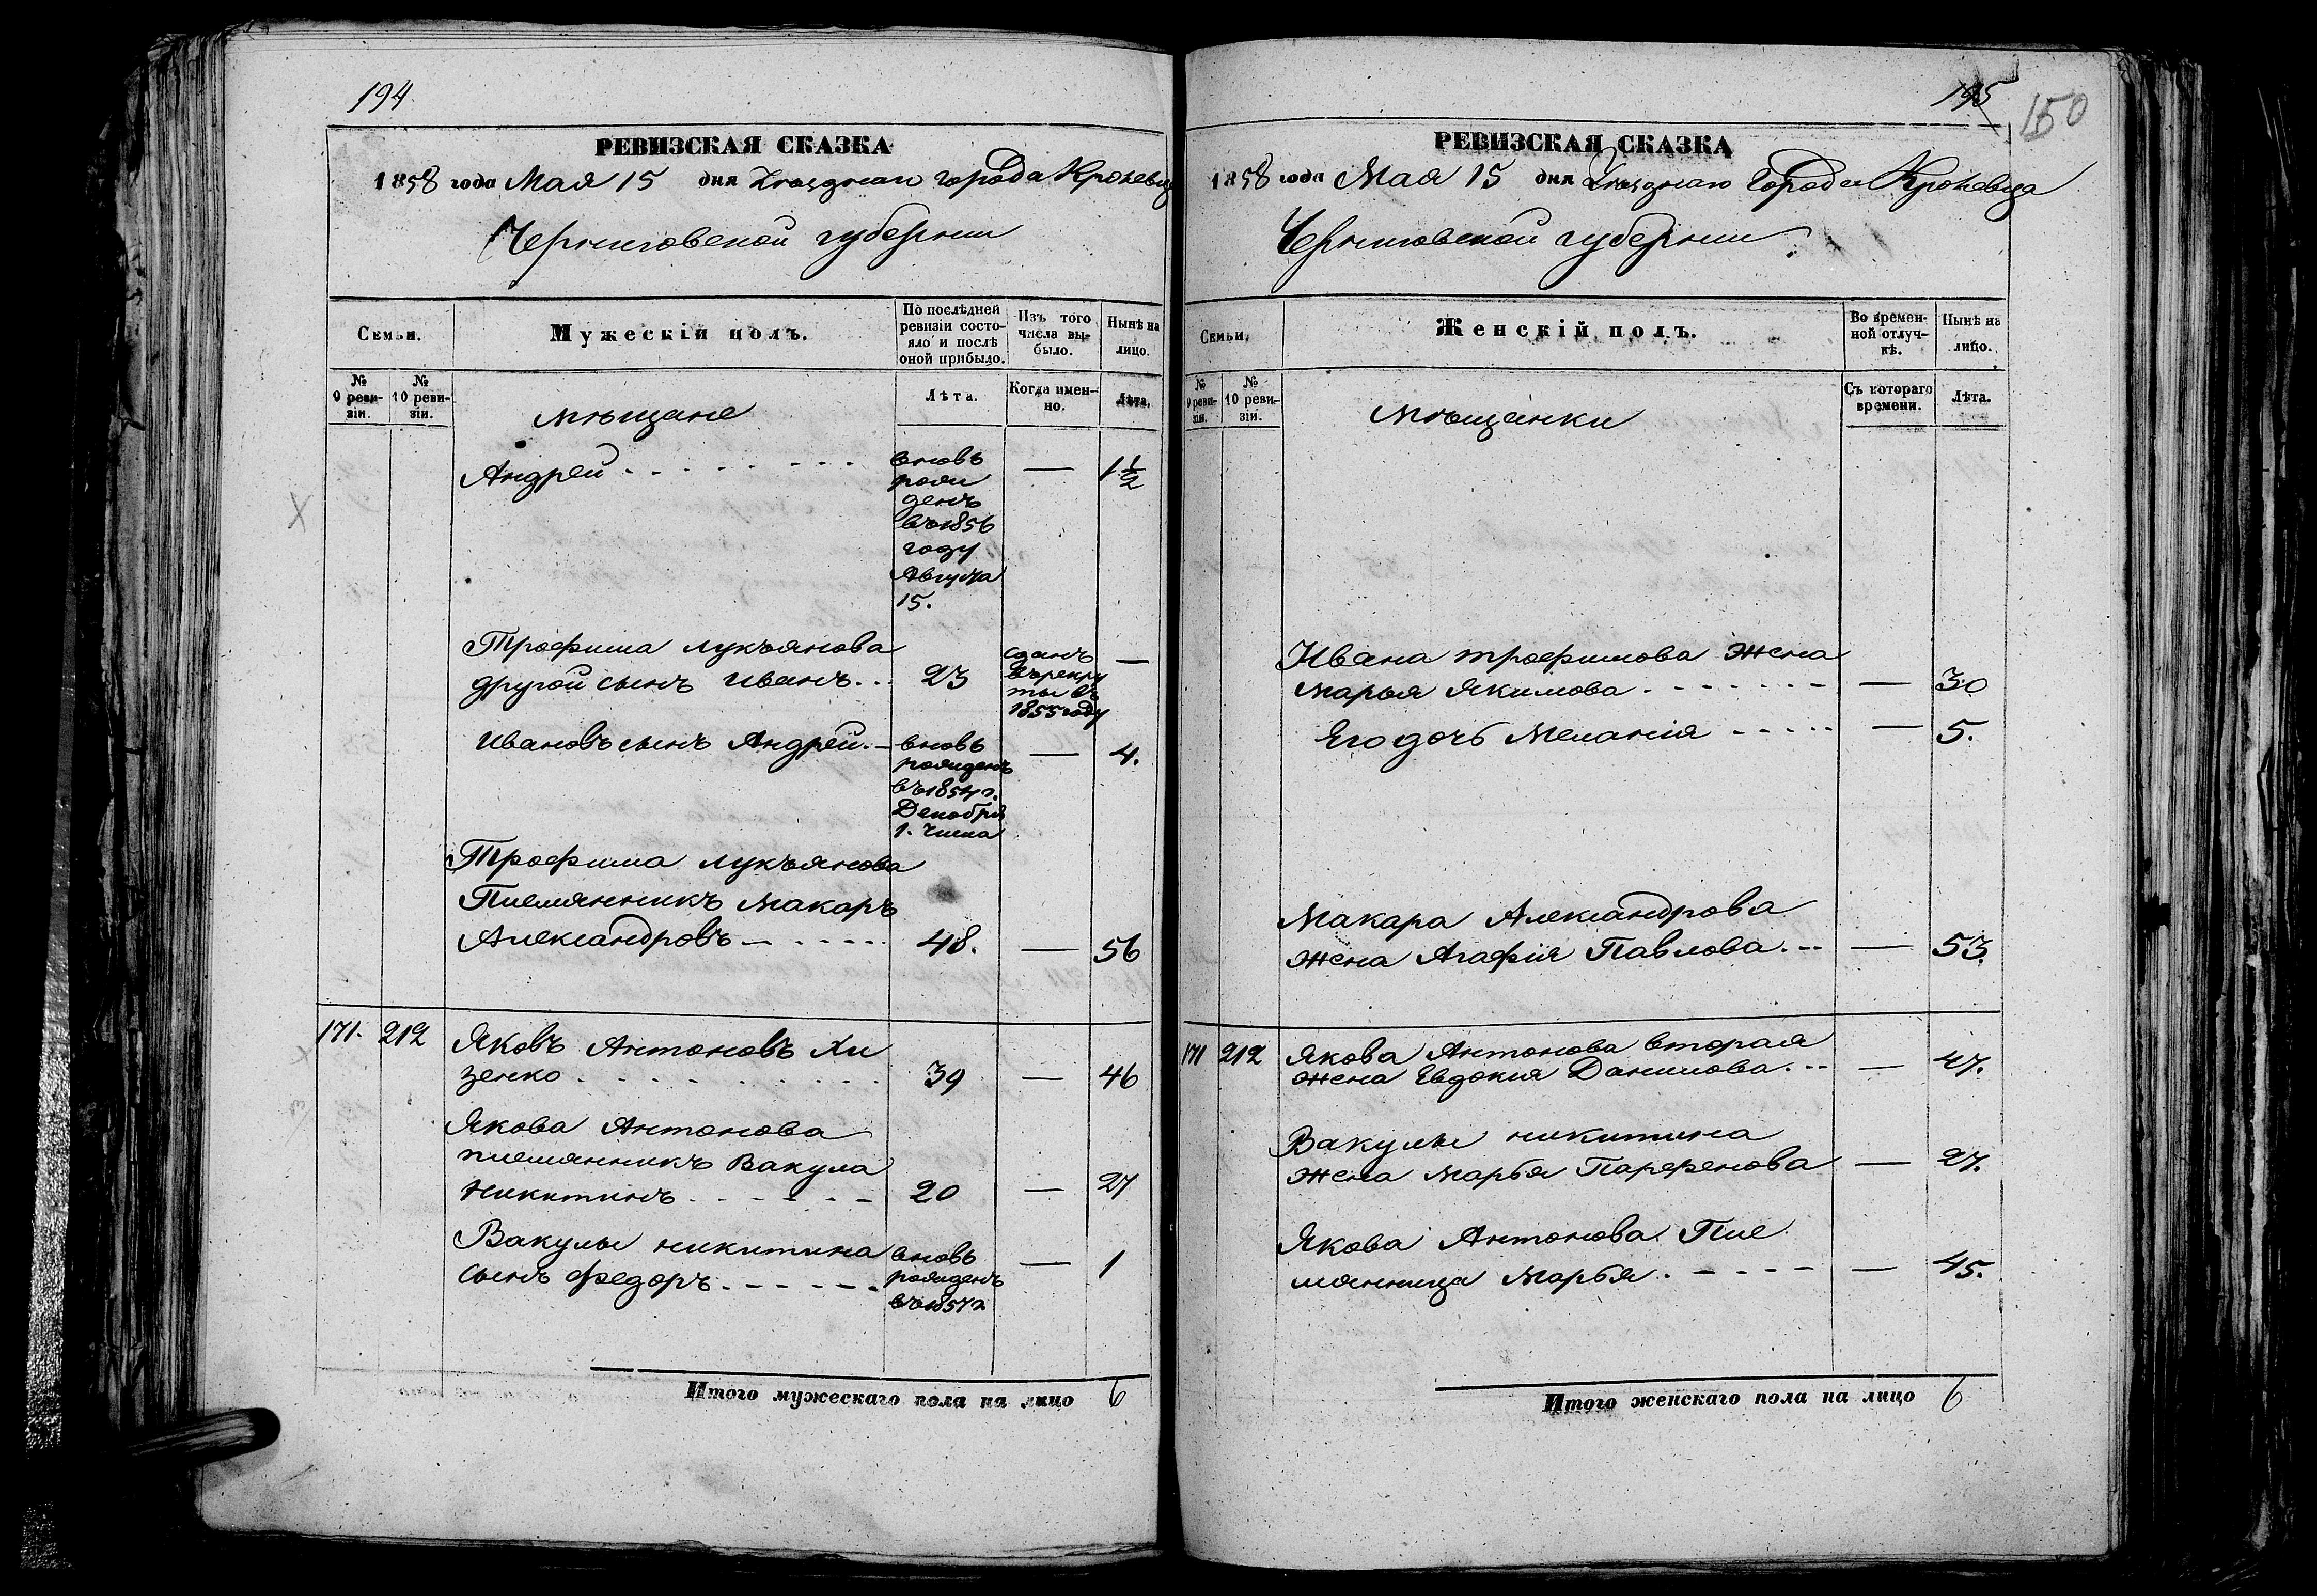 194
РЕВИЗСКАЯ СКАЗКА
1858 года Мая 15 дня города Кролевца
Черниговской губернии
Семьи.
Мужескій полъ.
По послѣдней ревизіи состояло и послѣ оной прибыло.
Изъ того числа выбыло.
Нынѣ на лицо.
№ 9 ревизіи.
№ 10 ревизіи.
мѣщане
Лѣта.
Когда именно.
Лѣта.
Андрей - - - - - - - вновь — 1 1/2
рож
денъ
въ 1856
году
Августа
15.
Трофима Лукъянова
другой сынъ Иванъ . . . 23 —
сданъ
въ рекру
ты въ
1855 году
Ивановъ сынъ Андрей. — вновь — 4.
рожденъ
въ 1854 г.
Декабря
1. числа
Трофима Лукъянова
Племянникъ Макаръ
Александровъ — - - - - 48. — 56
171. 212 Яковъ Антоновъ Хи
зенко . . . . . . . . . 39 — 46
Якова Антонова
племянникъ Вакула
Никитинъ - - - - - - 20 — 27
Вакулы никитина вновь — 1
сынъ Федоръ - - - - - рожденъ
въ 1857 г
Итого мужескаго пола на лицо 6
195
150
РЕВИЗСКАЯ СКАЗКА
1858 года Мая 15 дня Города Кролевца
Черниговской губернии
Семьи.
Женскій полъ.
Во временной отлучкѣ.
Нынѣ на лицо.
№ 9 ревизіи.
№ 10 ревизіи.
мѣщанки
Съ котораго времени.
Лѣта.
Ивана трофимова жена
марья Якимова - - - - - - - — 30
Его дочь Меланія - - - - - — 5.
Макара Александрова
жена Агафия Павлова. -- — 53.
171 212 Якова Антонова вторая
жена Евдокия Данилова. -- — 47.
Вакулы никитина
жена марья Парфенова — 27.
Якова Антонова Пле
мянница Марья. - - - - — 45.
Итого женскаго пола на лицо 6